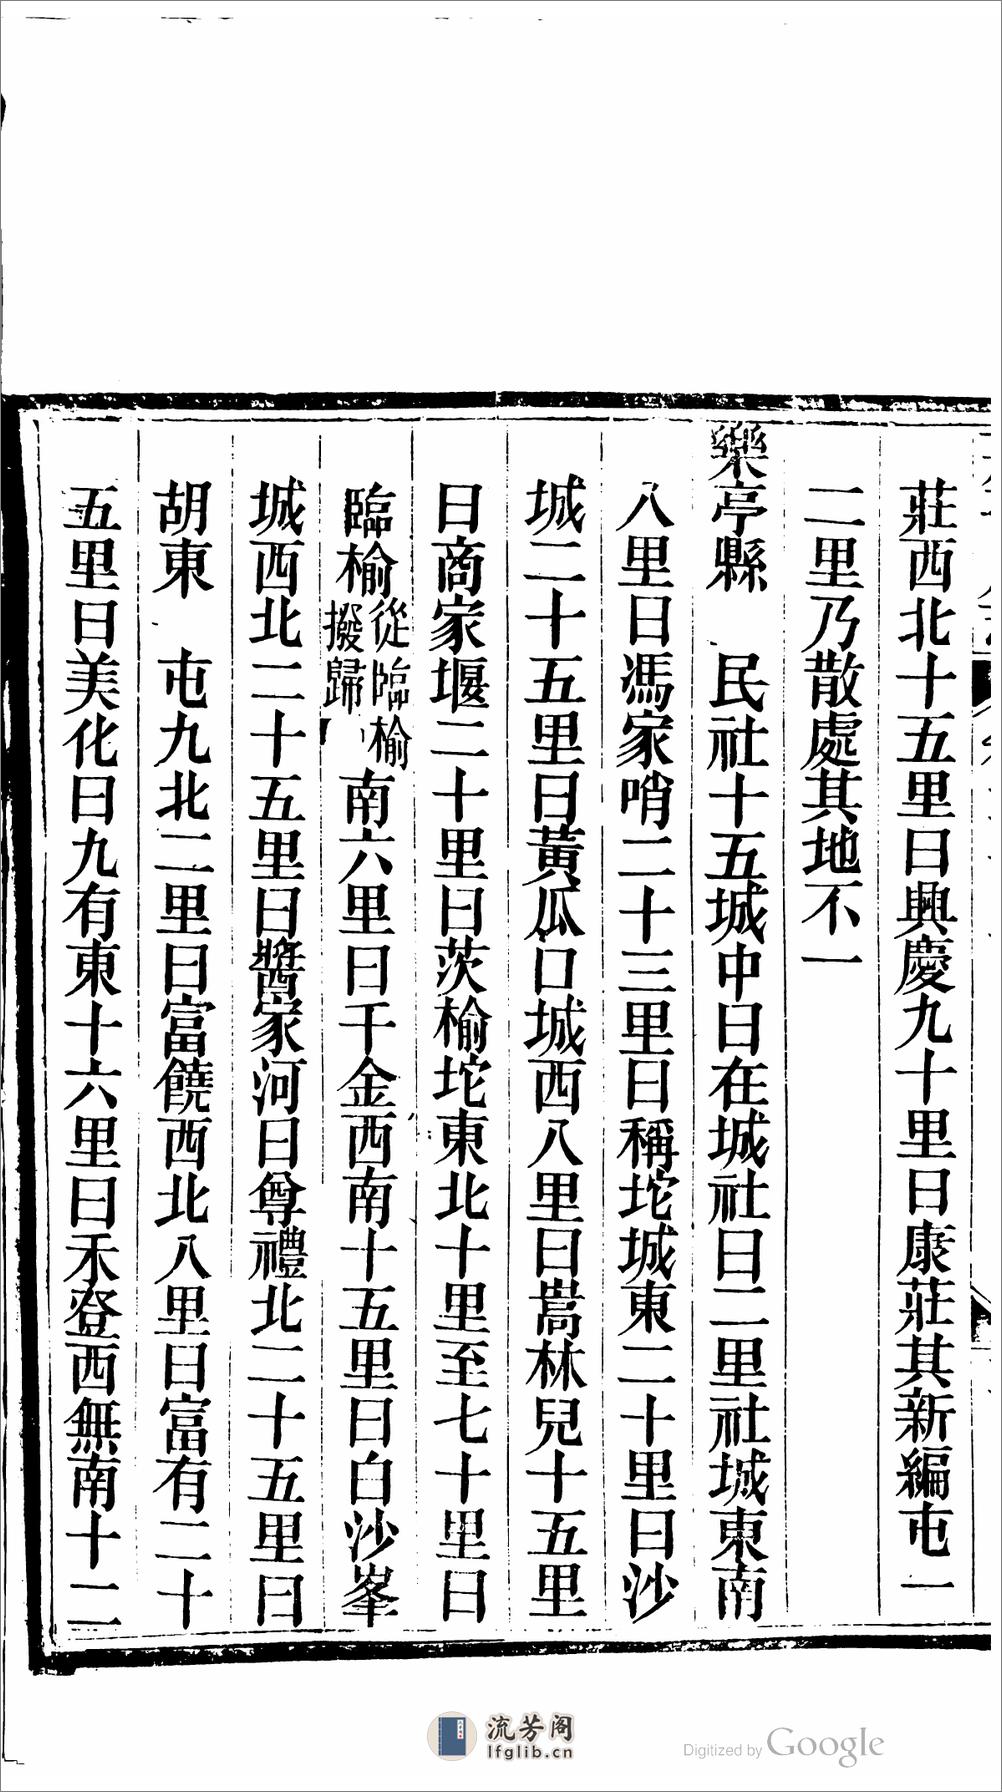 莊西北十五里曰興慶九十里曰康莊其新編屯一
二里乃散處其地不一
樂亭縣　民社十五城中曰在城社曰二里社城東南
八里曰馮家哨二十三里曰稱坨城東二十里曰沙
城二十五里曰黃瓜口城西八里曰嵩林兒十五里
曰商家堰二十里曰茨榆坨東北十里至七十里曰
臨榆從臨榆撥歸南六里曰千金西南十五里曰白沙峯
城西北二十五里曰醬家河曰尊禮北二十五里曰
胡東　屯九北二里曰富饒西北八里曰富有二十
五里曰美化曰九有東十六里曰禾登西無南十二
流芳阁
lfglib.cn
Digitized by Google